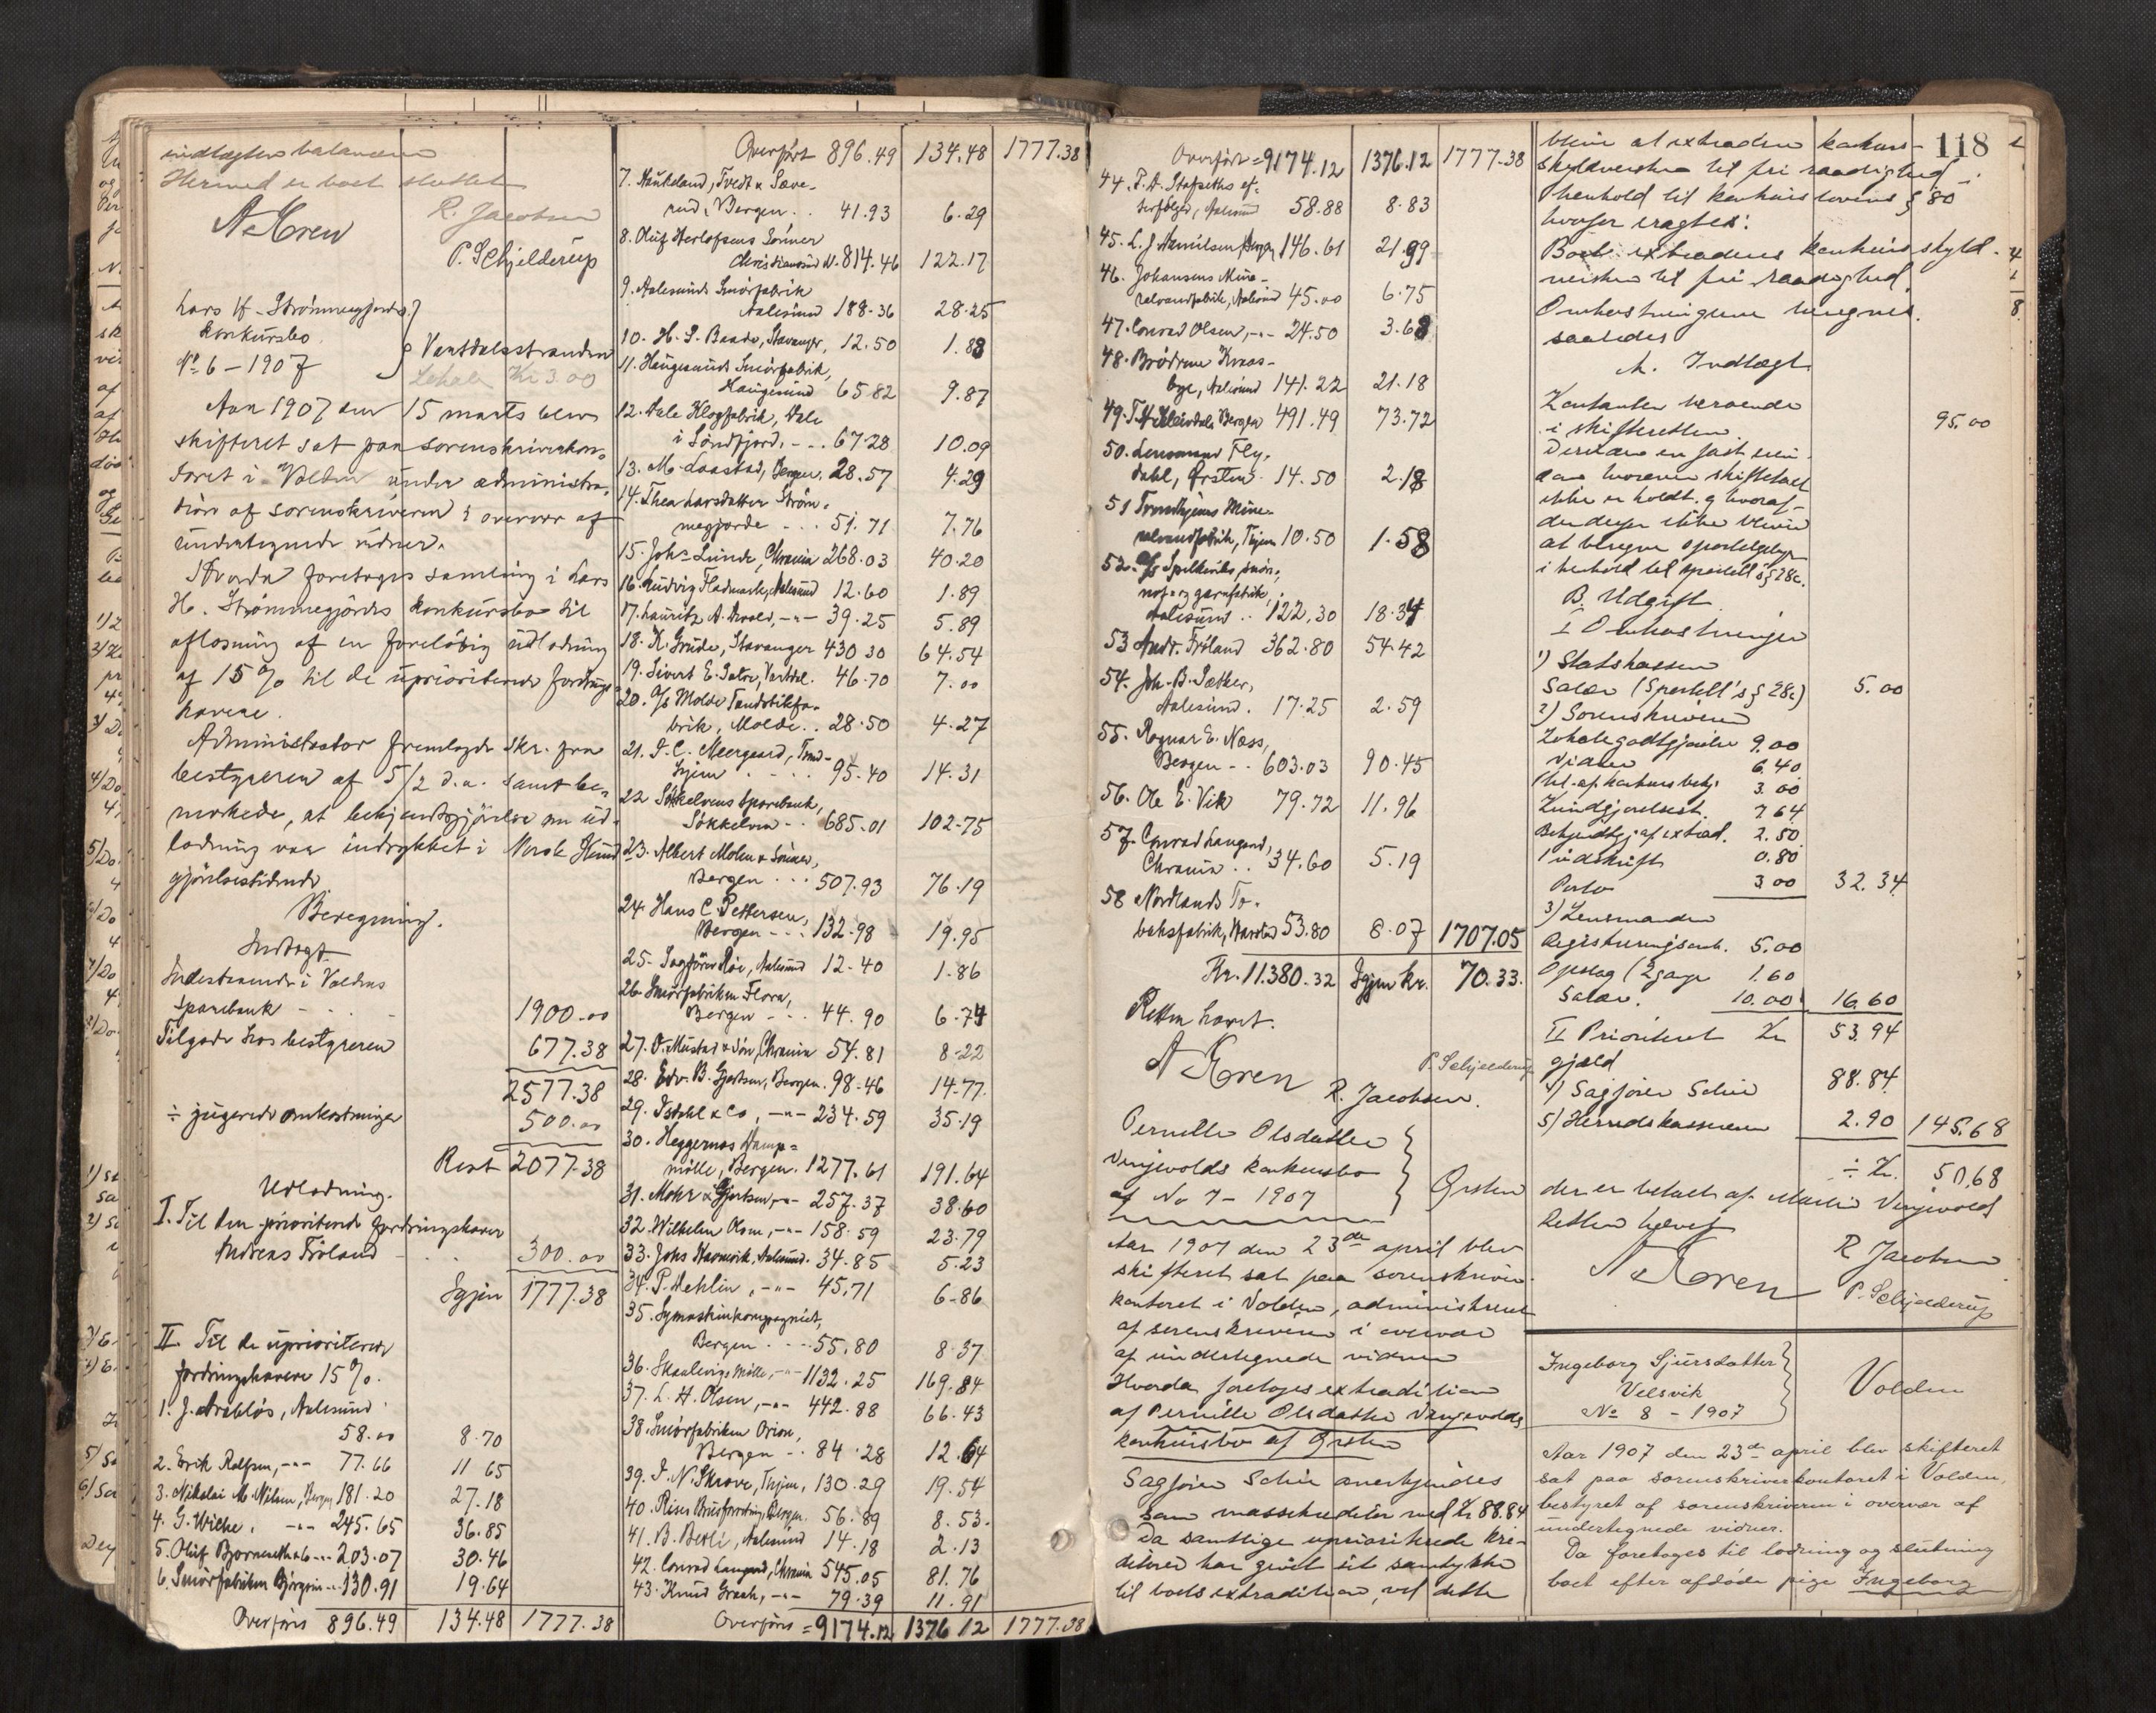 indlægtes balancen
Hermed er boet sluttet
A Koren
R. Jacobsen
P. Schjelderup
Lars H. Strömmegjerdes
konkursbo
No 6 – 1907
Vartdalsstranden
Lokale Kr 3.00
Aar 1907 den 15 marts blev
skifteret sat paa sorenskriverkon-
toret i Volden under administra-
tion af sorenskriveren i overvær af
undertegnede vidner.
Hvorda foretoges samling i Lars
H. Strömmegjerdes konkursbo til
aflösning af en foreløbig udlodning
af 15% til de uprioriterede fordrings-
havere.
Administrator fremlagde skr. fra
bestyreren af 5/2 d.a. samt be-
mærkede, at bekjendtgjörelse om ud-
lodning var indrykket i Norsk Kund-
gjörelsestidende
Beregning.
Indtægt
Indestaaende i Voldens
sparebank – 1900.00
Tilgode hos bestyreren 677.38
2577.38
÷ pligtige omkostninger 500.00
Rest 2077.38
Udlodning.
I. Til den prioriterede fordringshaver
Andreas Fröland 300.00
Igjen 1777.38
II. Til de uprioriterede
fordringshavere 15%.
1. J. Aarflös, Aalesund
58.00 8.70
2. Erik Rolfsen, –"– 77.66 11 65
3. Nikolai M. Nilsen, Bergen 181.20 27.18
4. G. Wilke, –"– 245.65 36.85
5. Oluf Bjorneseth & Co –"– 203.07 30.46
6. Smörfabriken Björgvin –"– 130.91 19.64
Overføres 896.49 134.48 1777.38
Overført 896.49 134.48 1777.38
7. Haukeland, Tvedt & Sæve-
rud, Bergen . . 41.93 6.29
8. Oluf Herlofsens Sönner
Christiansund N. 814.46 122.17
9. Aalesunds Smörfabrik
Aalesund 188.36 28.25
10. H. S. Baade, Stavanger, 12.50 1.88
11. Haugesunds Smörfabrik,
Haugesund 65.82 9.87
12. Dale Klogfabrik, Dale
i Söndfjord, – . . 67.28 10.09
13. M. Laastad, Bergen. 28.57 4.29
14. Thea Larsdatter Ström-
megjerde – . . . 51.71 7.76
15. Johs Lunde, Chrania 268.03 40.20
16. Ludvig Fladmark, Aalesund 12.60 1.89
17. Lauritz A. Arvold, –"– 39.25 5.89
18. K. Grude, Stavanger 430 30 64.54
19. Sivert E. Sætre, Vartdal. 46.70 7.00
20. A/S Molde Tændstikfa-
brik, Molde . . 28.50 4.27
21. I. C. Meergaard, Trond-
hjem . . . . 95.40 14.31
22 Søkkelvens Sparebank,
Søkkelven – . 685.01 102.75
23. Albert Mohn & Sönner,
Bergen . . . 507.93 76.19
24. Hans C. Pettersen,
Bergen – . . 132.98 19.95
25. Sagförer Röe, Aalesund 12.40 1.86
26. Smörfabriken Flora,
Bergen – . . 44.90 6.74
27. O. Mustad & Sön, Chrania 54.81 8.22
28. Edv. B. Gjertsen, Bergen. 98.46 14.77.
29. Isdahl & Co, –"– 234.59 35.19
30. Heggernæs Damp-
mölle, Bergen. 1277.61 191.64
31. Mohr & Gjertsen, –"– 257.37 38.60
32. Wilhelm Olsen, –"– 158.59 23.79
33. Johs Havnevik, Aalesund. 34.85 5.23
34. P. Mehlin, –"– 45,71 6.86
35. Symaskinkompagniet,
Bergen . . . . 55,80 8.37
36. Skaalevigs Mölle, –"– 1132.25 169.84
37. L. H. Olsen, –"– 442.88 66.43
38. Smörfabriken Orion,
Bergen – . 84.28 12.64
39. I. N. Skrove, Thjem, 130.29 19.54
40. Rises Brusforretning, Bergen. 56.89 8.53.
41. B. Berli, Aalesund 14.18 2.13
42. Conrad Langaard, Chrania 545.05 81.76
43. Knud Graah, –"– 79.39 11.91
Overføres = 9174.12 1376 12 1777.38
118
Overført = 9174.12 1376.12 1777.38
44. P. A. Stafseths ef-
terfølger, Aalesund 58.88 8.83
45. L. J. Arnülsen, Bergen 146.61 21.99
46. Johansens Mine-
ralvandfabrik, Aalesund 45.00 6.75
47. Conrad Olsen, –"– 24.50 3.68
48. Brödrene Kvaas-
bye, Aalesund 141.22 21.18
49. T. H. Kleivdal, Bergen 491.49 73.72
50. Lensmand Fly-
dahl, Ørsten. 14.50 2.18
51 Trondhjems Mine-
ralvandfabrik, Thjem 10.50 1.58
52. A/S Spilkeviks snör-,
not- og garnfabrik,
Aalesund . . 122.30 18.34
53 Andr. Fröland 362.80 54.42
54. Joh. B. Sæther,
Aalesund . 17.25 2.59
55. Ragnar E. Næss,
Bergen – . 603.03 90.45
56. Ole E. Vik 79.72 11.96
57. Conrad Langaard,
Chrania . . 34.60 5.19
58 Nordlands To-
baksfabrik, Harstad 53.80 8.07 1707.05
Kr. 11.380.32 Igjen kr. 70.33.
Retten hævet.
A Koren
R. Jacobsen.
P. Schjelderup
Pernille Olsdatter
Vinjevolds konkursbo
af No 7 – 1907
Ørsten
Aar 1907 den 23de april blev
skifteret sat paa sorenskriver-
kontoret i Volden, administreret
af sorenskriveren i overvær
af undertegnede vidner
Hvorda foretoges extradition
af Pernille Olsdatter Vinjevolds
konkursbo af Ørsten
Sagfører Schie anerkjendes
som massekreditor med Kr 88.84
Da samtlige uprioriterede kre-
ditorer har givet sit samtykke
til boets extradition, vil dette
blive at extradere konkurs-
skyldnerska til fri raadighed
i henhold til konkurslovens § 80
hvorfor eragtes:
Boet extraderes konkursskyld-
nersken til fri raadighed.
Omkostningerne beregnes
saaledes
A. Indtægt
Kontanter beroende
i skifteretten. 95.00
Desuden en fast eien-
dom hvorover skiftetakst
ikke er holdt, og hvoraf
der derfor ikke bliver
at beregne sportelgebyr
i henhold til sportell's § 28c.
B. Udgift
I Omkostninger
1) Statskassen
Salær (Sportell's § 28c) 5.00
2) Sorenskriveren
Lokalegodtgjørelse 9.00
Vidner 6.40
Bet. af konkursbekj. 3.00
Kundgjørelsest. 7 64
Bekjendtgj af extrad. 2.50
1 udskrift 0.80
Porto 3.00 32.34
3) Lensmanden
Registreringsomk. 5.00
Opslag (2 gange 1.60
Salær. 10.00 16.60
Kr 53.94
II Prioriteret
gjæld
4) Sagfører Schie 88.84
5) Herredskassereren 2.90 145.68
÷ Kr. 50,68
der er betalt af Martin Vinjevold
Retten hævet
A Koren
R Jacobsen
P. Schjelderup
Ingeborg Sjursdatter
Velsvik
No 8 – 1907
Volden
Aar 1907 den 23de april blev skifteret
sat paa sorenskriverkontoret i Volden,
bestyret af sorenskriveren i overvær af
undertegnede vidner.
Da foretoges til lodning og slutning
boet efter afdøde pige Ingeborg